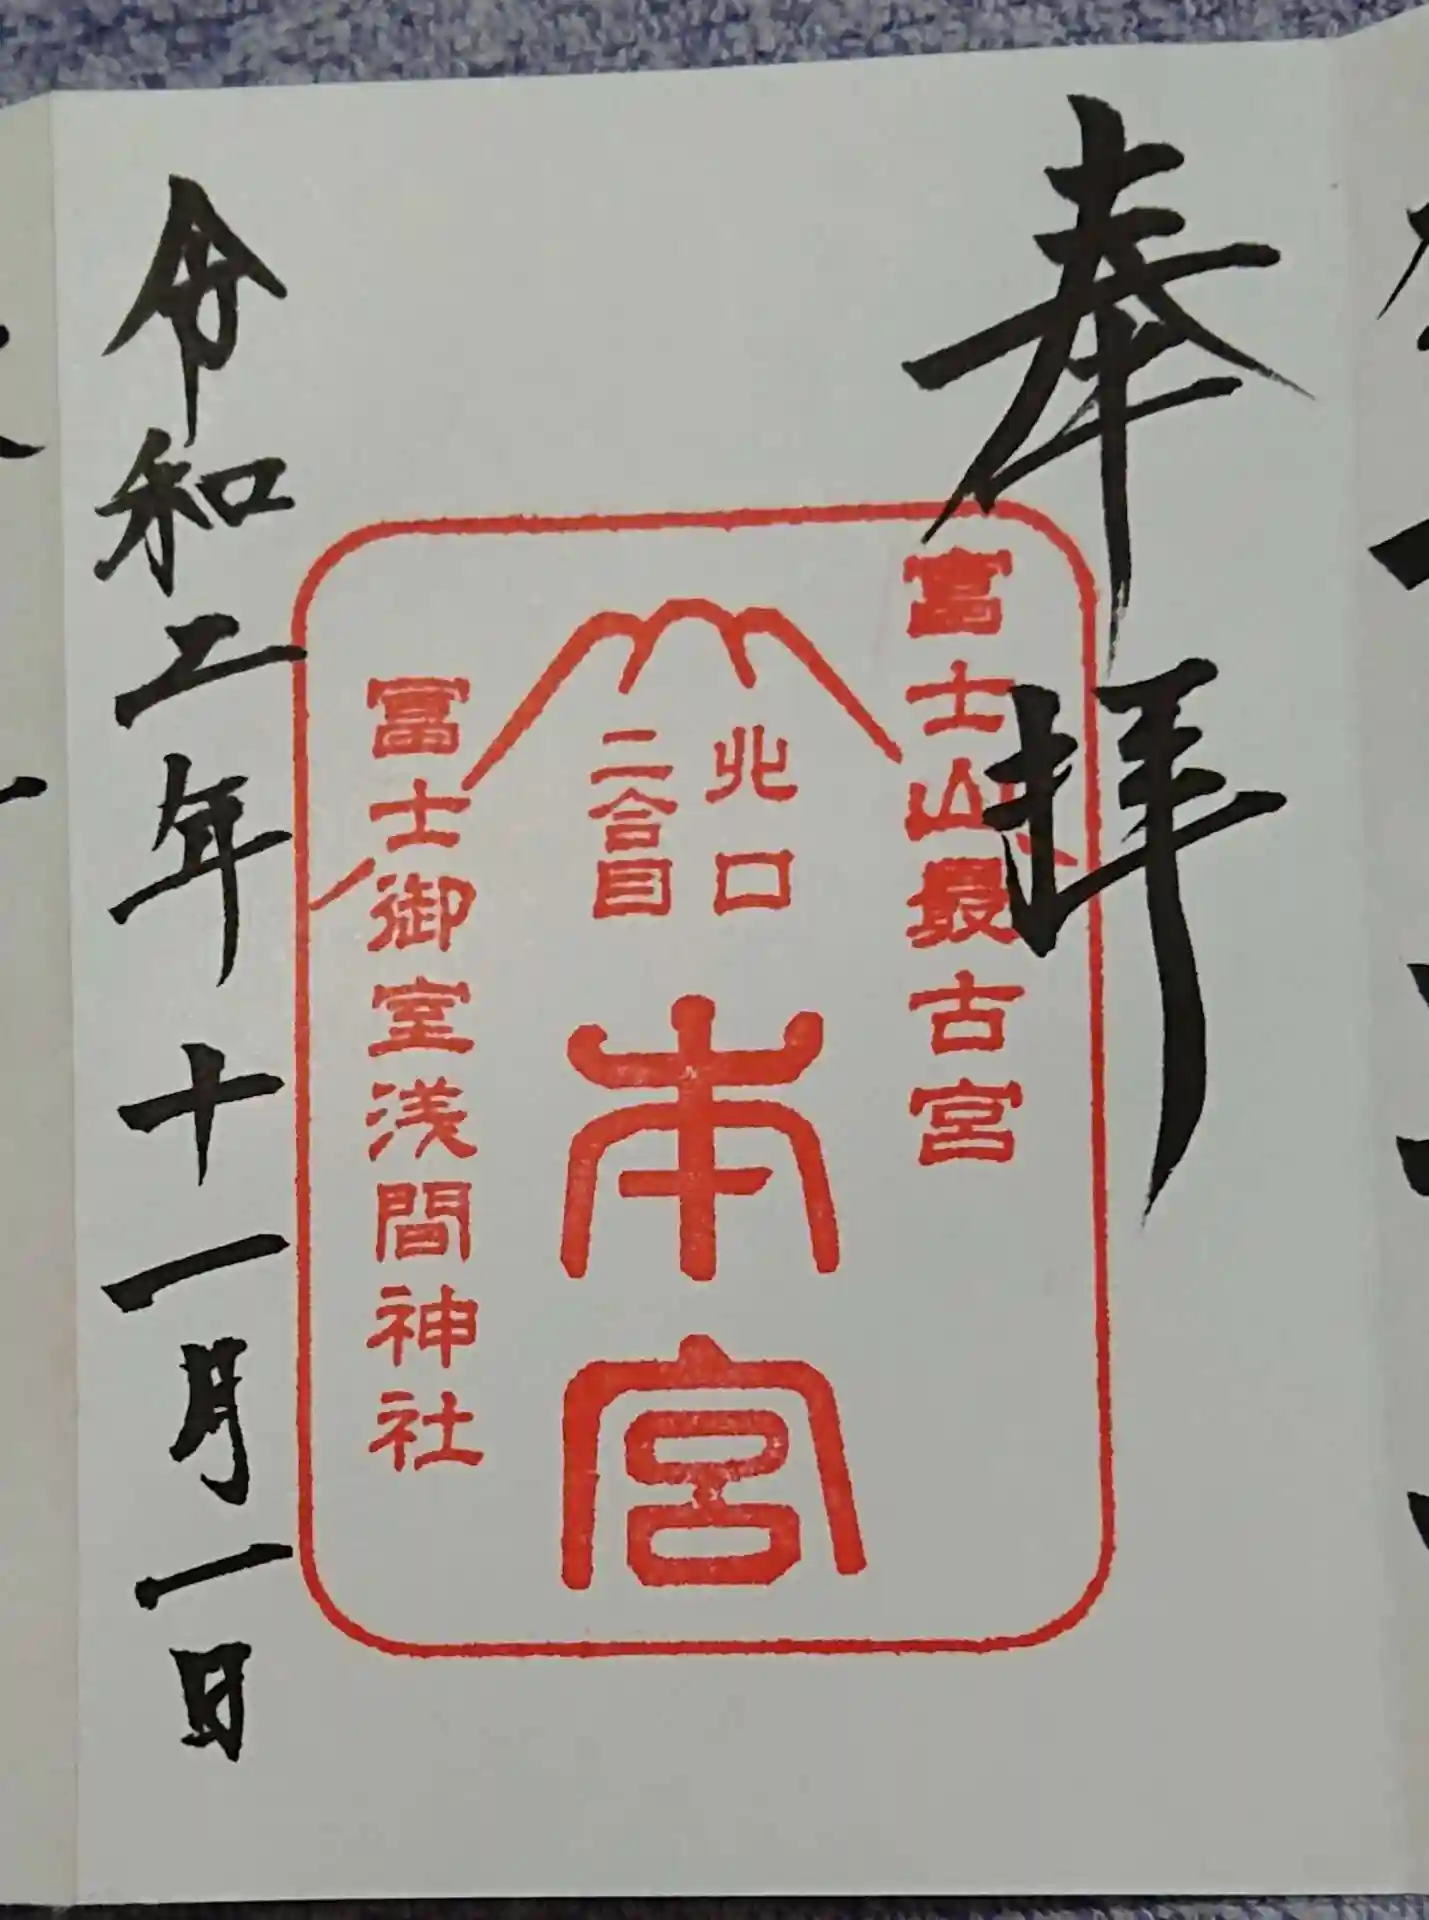 奉拝
富士山最古宮
北口
二合目
本宮
冨士御室浅間神社
令和二年十一月一日